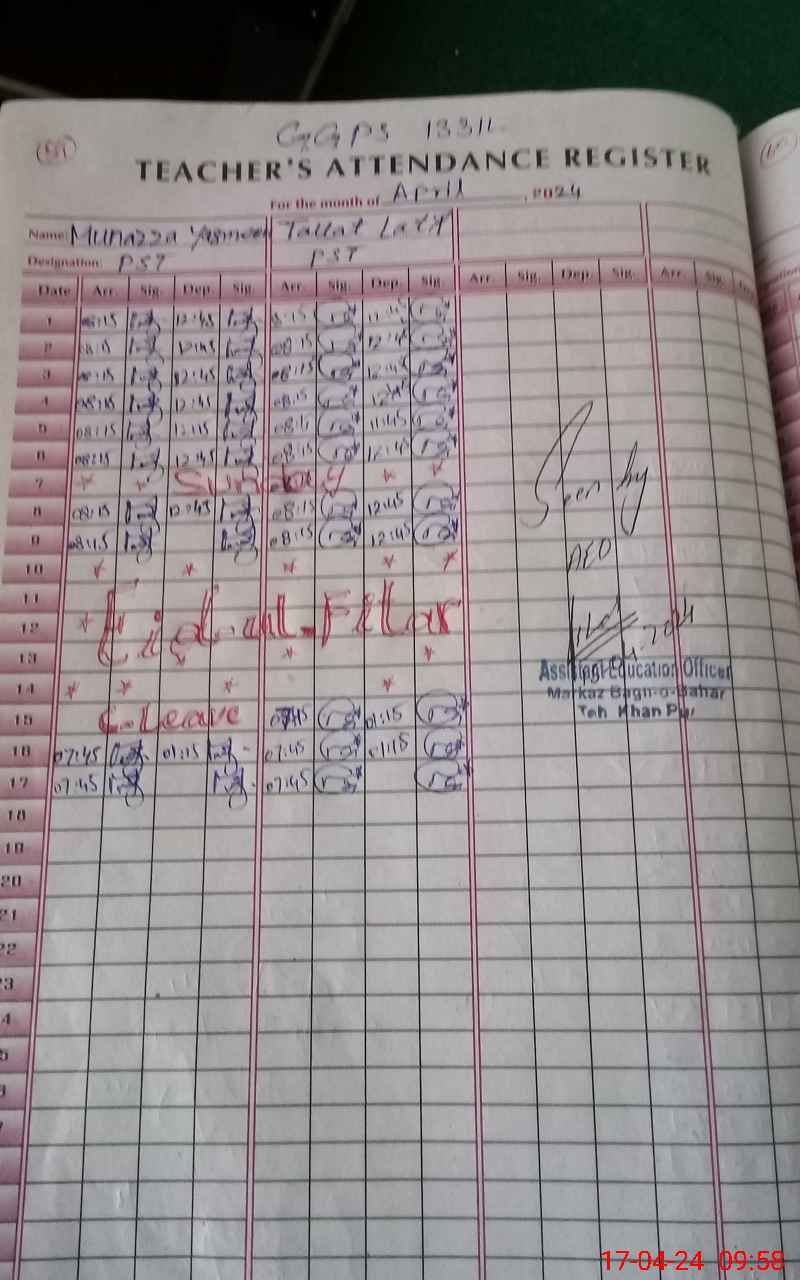 GGPS 133/L
TEACHER'S ATTENDANCE REGISTER
For the month of April, 2024
Name: Munazza Yasmeen Tallat Latif
Designation: PST PST
Date Arr. Sig. Dep. Sig. Arr. Sig. Dep. Sig. Arr. Sig. Dep. Sig. Arr. Sig.
1 08:15 12:45 8:15
2 08:15 12:45 08:15 12:45
3 08:15 12:45 08:15 12:45
4 08:15 12:45 08:15
5 08:15 08:15 11:45
6 08:15 12:45 08:15 12:45
7 * * Sunday * *
8 08:15 12:45 08:15 12:45
9 08:15 08:15 12:45
10 * * * * *
11
12 * Eid-ul-Fitar
13 * *
14 * * * *
15 C.Leave 07:45 01:15
16 07:45 01:15 07:45 01:15
17 07:45 07:45
18
19
20
21
22
23
Seen by
AEO
Assistant Education Officer
Markaz Bagh-o-Bahar
Teh Khan Pur
17-04-24 09:58